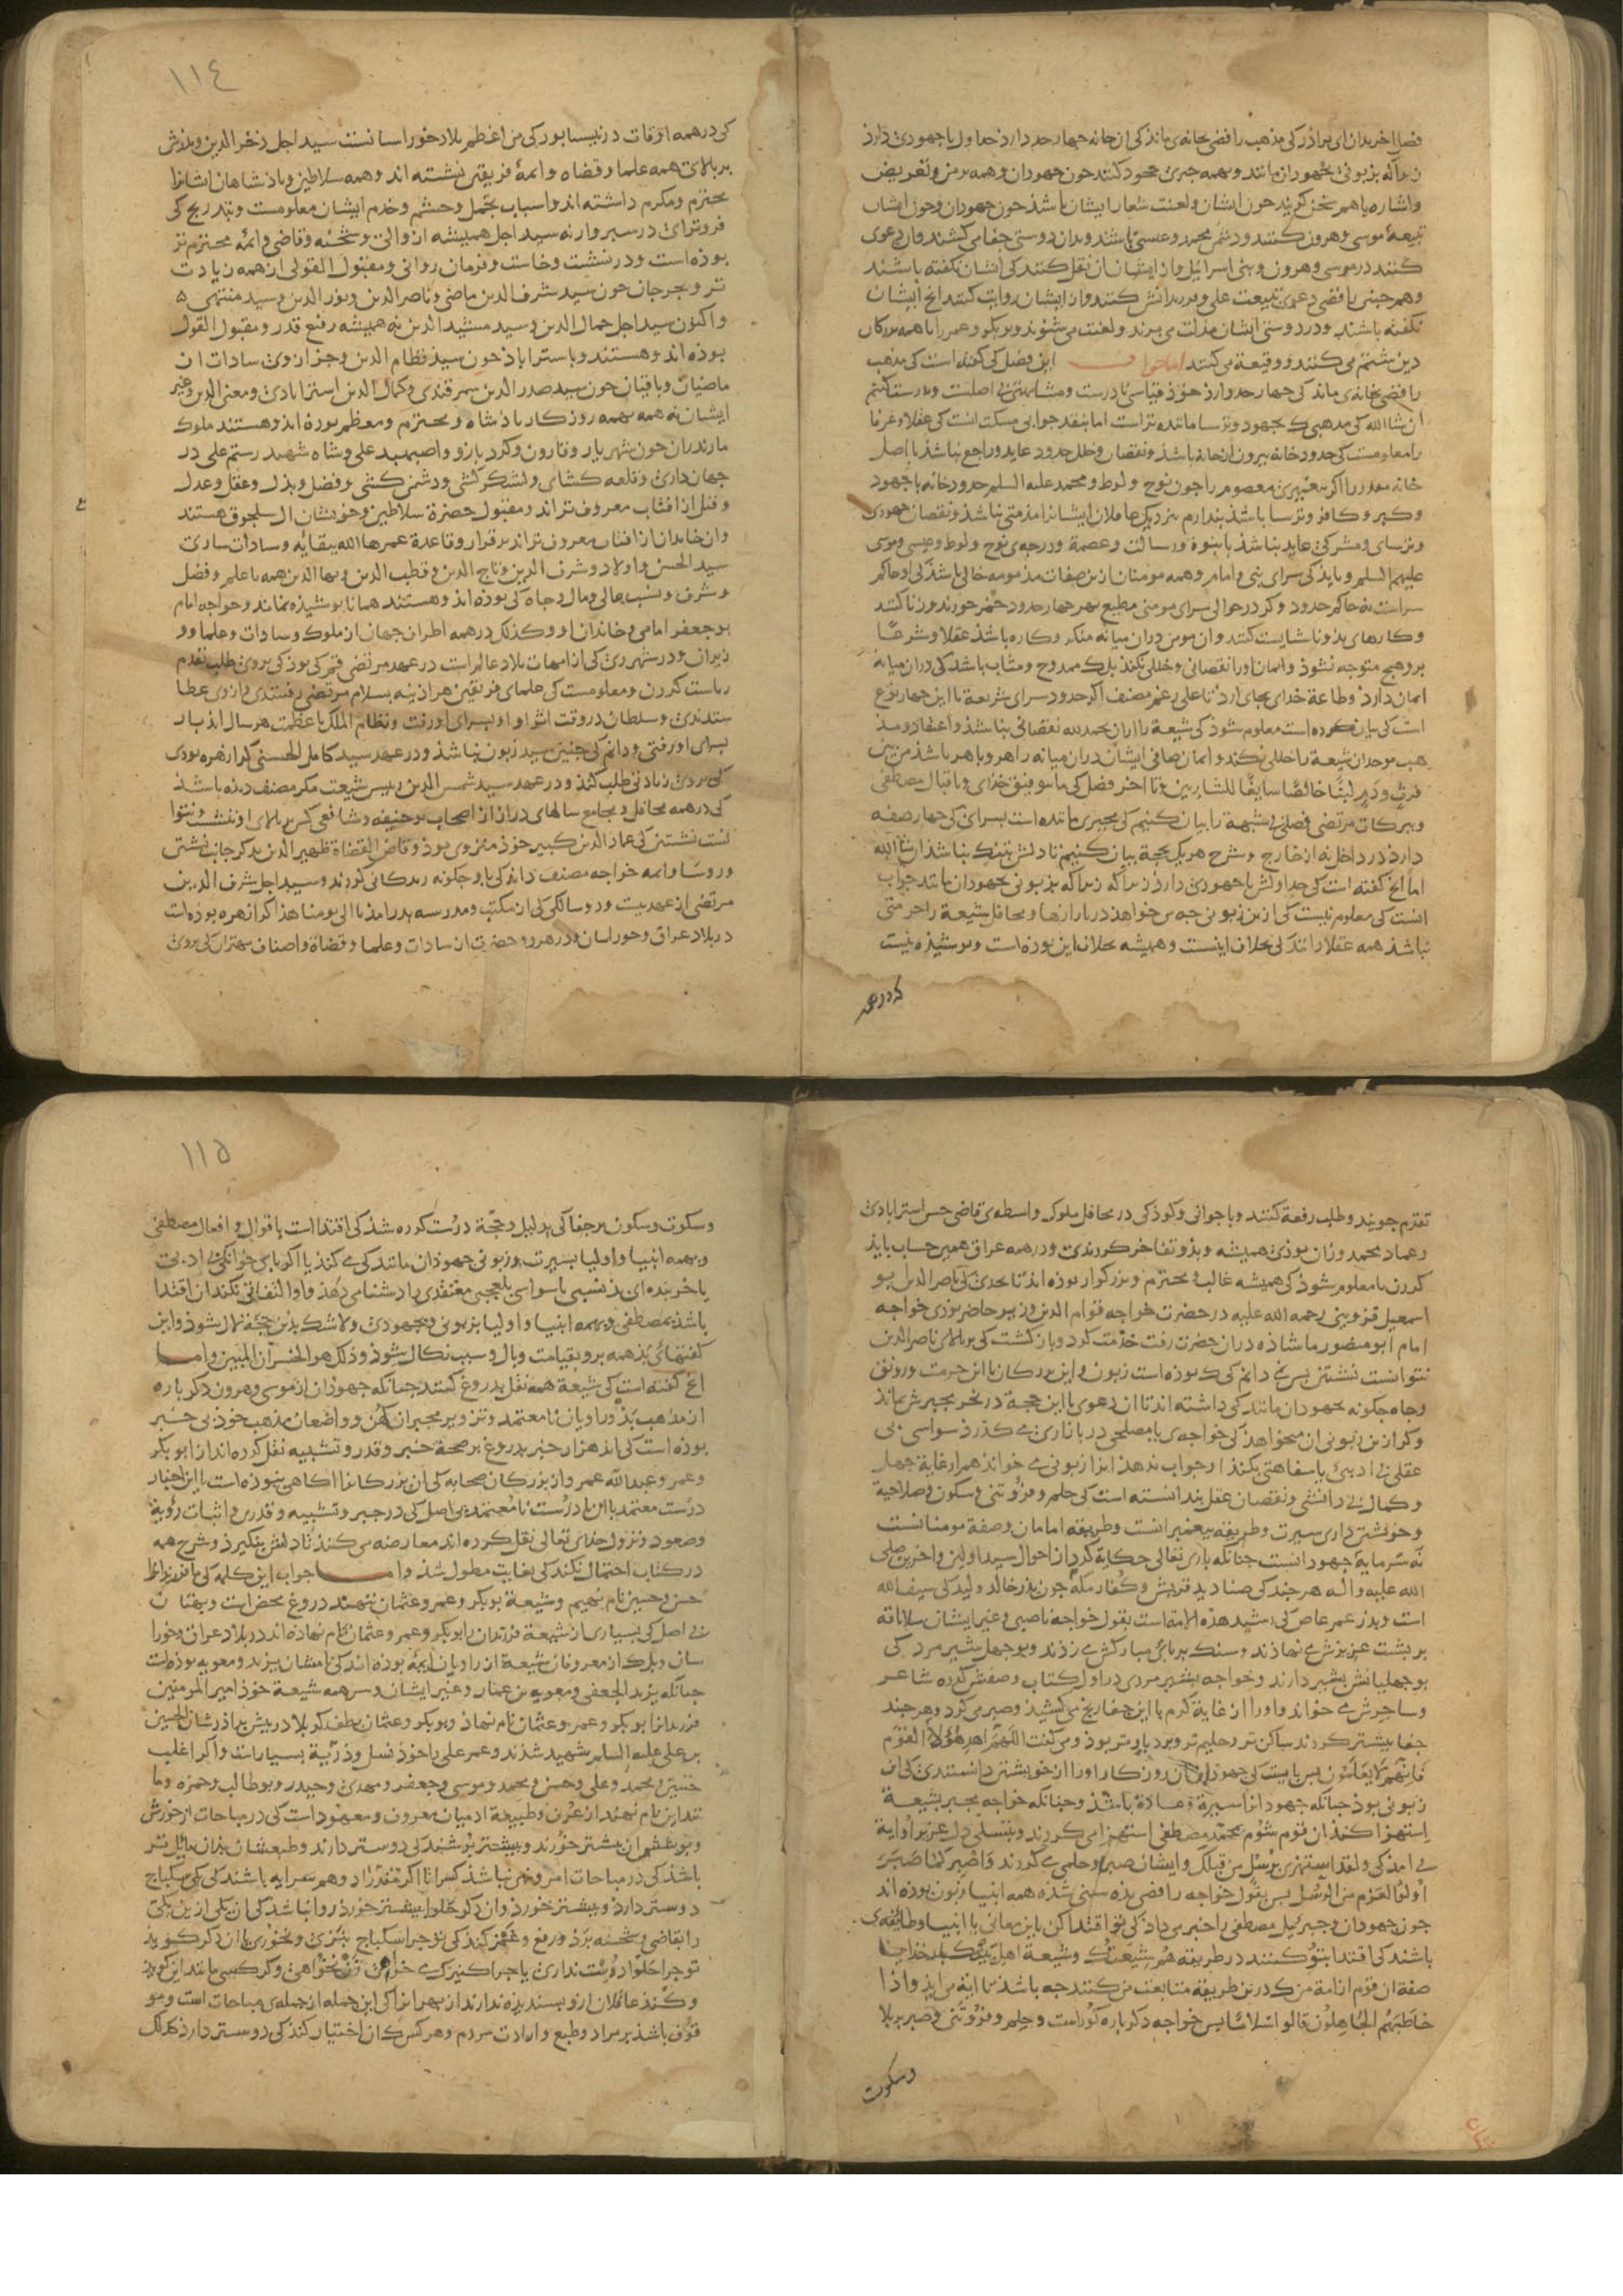 فصل اخر بدان ای برادر کی مذهب رافضی بخانه‌ی ماند کی ان خانه چهار حد دارد حد اول با جهودی دارد
زیرا که بزبونی بجهودان مانند و همه جبری محمود کنند چون جهودان و همه برمز و تعریض
و اشاره با هم سخن گویند چون ایشان و لعنت شعار ایشان باشد چون جهودان و چون ایشان
شیعهٔ موسی و هرون کنند و دشمن محمد و عیسی باشند و بدان دوستی جفا می کشند و ان دعوی
کنند در موسی و هرون و بنی اسرائیل و از ایشان ان نقل کنند کی ایشان نگفته باشند
و همچنین رافضی دعوی شیعت علی و فرزندانش کنند و از ایشان روایت کنند انچ ایشان
نگفته باشند و در دوستی ایشان مذلت می برند و لعنت می شنوند و بوبکر و عمر را با همه بزرگان
دین شتم می کنند و وقیعة می کنند اما جواب این فصل کی گفته است کی مذهب
رافضی بخانه‌ی ماند کی چهار حد دارد خود قیاسی نادرست و مشابهتی بی اصلست و ما درست کنیم
ان شا الله کی مذهبی که بجهود و ترسا ماننده تر است اما بنقد جوابی مسکت انست کی عقلا و عرفا
را معلومست کی حدود خانه بیرون از خانه باشد و نقصان و خلل حدود عاید و راجع نباشد با اصل
خانه مقدر را اگر پیغمبری معصوم را چون نوح و لوط و محمد علیه السلم حدود خانه با جهود
و گبر و کافر و ترسا باشد پندارم بنزدیک عاقلان ایشانرا مذمتی نباشد و نقصان جهودی
و ترسای و مشرکی عاید نباشد با نبوة و رسالت و عصمة و درجه‌ی نوح و لوط و عیسی و موسی
علیهم السلم و باید کی سرای نبی و امام و همه مومنان ازین صفات مذمومه خالی باشد کی او حاکم
سراست نه حاکم حدود و گر در حوالی سرای مومنی مطیع بهر چهار حدود خمر خورند و زنا کنند
و کارهای بد و ناشایست کنند و ان مومن دران میانه منکر و کاره باشد عقلا و شرعا
برو هیچ متوجه نشود و ایمان او را نقصانی و خللی نکند بلک ممدوح و مثاب باشد کی دران میانه
ایمان دارد و طاعة خدای بجای ارد تا علی رغم مصنف اگر حدود سرای شریعة با این چهار نوع
است کی بیان کرده است معلوم شود کی شیعة را از ان بحمد الله نقصانی نباشد و اعتقاد و مذ
هب موحدان شیعة را خللی نکند و ایمان صافی ایشان دران میانه زاهر و باهر باشد من بین
فرث و دم لبنًا خالصًا سایغًا للشاربین و تا اخر فصل کی ما بتوفیق خدای و باقبال مصطفی
و ببرکات مرتضی فصلی بشبهة را بیان کنیم کی مجبری مانده است بسرائی کی چهار صفه
دارد در داخل نه از خارج و شرح هر یک بحجة بیان کنیم تا دلش بتنگ نباشد ان شا الله
اما انچ گفته است کی حد اولش با جهودی دارد زیرا که زیرا که بزبونی بجهودان مانند جواب
انست کی معلوم نیست کی ازین زبونی چه می خواهد در بازارها و محافل شیعة را حرمتی
نباشد همه عقلا دانند کی بخلاف اینست و همیشه بخلاف این بوده است و پوشیده نیست
که در همه
١١٤
کی در همه اوقات در نیسابور کی من اعظم بلاد خوراسانست سید اجل ذخر الدین و پدرش
بر بالای همه علما و قضاه و ایمهٔ فریقین نشسته اند و همه سلاطین و پادشاهان ایشانرا
محترم و مکرم داشته اند و اسباب تجمل و حشم و خدم ایشان معلومست و بتدریج کی
فروتر ای در سبزوار نه سید اجل همیشه از والی و شحنه و قاضی و ایمه محترم تر
بوده است و در نشست و خاست و فرمان روانی و مقبول القولی از همه زیادت
تر و بجرجان چون سید شرف الدین ماضی و ناصر الدین و نور الدین و سید منتهی
و اکنون سید اجل جمال الدین و سید مشید الدین نه همیشه رفیع قدر و مقبول القول
بوده اند و هستند و باستراباذ چون سید نظام الدین و جز ازوی سادات ان
ماضیان و باقیان چون سید صدر الدین سمرقندی و کمال الدین استرابادی و معین الدین و غیر
ایشان نه همه بهمه روزگار پادشاه و محترم و معظم بوده اند و هستند ملوک
مازندران چون شهریار و قارون و گرد بازو و اصبهبد علی و شاه شهید رستم علی در
جهان داری و قلعه گشای و لشکر کشی و دشمن کشی و فضل و بذل و عقل و عدل
و فتل از افتاب معروف تر اند و مقبول حضرة سلاطین و خویشان ال سلجوق هستند
وان خاندان از افتاب معروف تر اند برقرار و قاعدة عمرها الله ببقایه و سادات ساری
سید الحسن و اولاد و شرف الدین و تاج الدین و قطب الدین و بها الدین همه با علم و فضل
و شرف و نسب عالی و مال و جاه کی بوده اند و هستند همانا پوشیده نماند و خواجه امام
بو جعفر امامی و خاندان او و کذلک در همه اطراف جهان از ملوک و سادات و علما و و
زیران و در شهر ری کی از امهات بلاد عالم است در عهد مرتضی قم کی بود کی بروی طلب تقدم
ریاست کردن و معلومست کی علمای فریقین هر اذینه بسلام مرتضی رفتندی و از وی عطا
ستدندی و سلطان در وقت اثر او او بسرای او رفت و نظام الملک با عظمت هر سال اند بار
بسرای او رفتی و دانم کی چنین سید زبون نباشد و در عهد سید کامل الحسنی کرا زهره بودی
کی بروی زیادتی طلب کند و در عهد سید شمس الدین رییس شیعت مگر مصنف دیده باشد
کی در همه محافل و مجامع سالهای دراز از اصحاب بو حنیفه و شافعی کس بر بالای او ننشست و نتوا
نست نشستن کی عماد الدین کبیر خود منزوی بود و قاضی القضاة ظهیر الدین بدگر جانب نشستی
و روسا و ایمه خواجه مصنف داند کی با او چگونه زندگانی کردند و سید اجل شرف الدین
مرتضی از عهد بیست و دو سالگی کی از مکتب و مدرسه بدر امد تا الی یومنا هذا کرا زهره بوده است
در بلاد عراق و خوراسان و در هر دو حضرت از سادات و علما و قضاة و اصناف مهتران کی بروی
تقدم جویند و طلب رفعة کنند و با جوانی و کودکی در محافل ملوک واسطه‌ی قاضی حسن استرابادی
و عماد محمد وزان بودی همیشه و بدو تفاخر کردندی و در همه عراق همین حساب باید
کردن تا معلوم شود کی همیشه غالب و محترم و بزرگوار بوده اند تا بحدی کی ناصر الدین بو
اسمعیل قزوینی رحمه الله علیه در حضرت خواجه قوام الدین وزیر حاضر بودی خواجه
امام ابو منصور ماشاذه دران حضرت رفت خدمت کرد و باز گشت کی بر بالای ناصر الدین
نتوانست نشستن پس نمی دانم کی که بوده است زبون و این بزرگان با این حرمت و رونق
و جاه چگونه بجهودان مانند کی داشته اند تا ان دعوی با این حجة در نحر مجبرش بماند
و گر ازین زبونی ان میخواهد کی خواجه‌ی با مصلحی در بازاری می گذرد سواسی بی
عقلی بی ادبی با سفاهتی بکند او جواب ندهد انرا زبونی می خواند هم از غایة جهل
و کمال بی دانشی و نقصان عقل بندانسته است کی حلم و فروتنی و سکون و صلاحیة
و خویشتن داری سیرت و طریقه پیغمبرانست و طریقه امامان و صفة مومنانست
نه سرمایهٔ جهودانست چنانکه باری تعالی حکایة کرد از احوال سید اولین و اخرین صلی
الله علیه و اله هر چند کی صنادید قریش و کفار مکه چون پدر خالد ولید کی سیف الله
است و پدر عمر عاص کی مشید هذه الامة است بقول خواجه ناصبی و غیر ایشان سلا ناقه
بر پشت عزیزش می نهادند و سنگ بر پای مبارکش می زدند و بوجهل بشیر مرد کی
بوجهلیانش بشیر دارند و خواجه بشیر مردی در اول کتاب وصفش کرده شاعر
و ساحرش می خواند و او را از غایة کرم با این جفا رنج می کشید و صبر می کرد و هر چند
جفا بیشتر کردند ساکن تر و حلیم تر و بردبار تر بود و می گفت اللهم اهد هؤلاء القوم
فانهم لا یعلمون پس بایست کی جهودان ان روزگار او را از خویشتن دانستندی کی این
زبونی بود چنانکه جهودانرا سیرة و عادة باشد و چنانکه خواجه مجبر بشیعة
استهزا کند ان قوم شوم بمحمد مصطفی استهزا می کردند و بتسلی دل عزیز او ایة
می امد کی و لقد استهزی برسل من قبلک و ایشان صبر و حلمی می کردند فاصبر کما صبر
اولوا العزم من الرسل پس بقول خواجه رافضی بده سنی شده همه انبیا زبون بوده اند
چون جهودان و جبرئیل مصطفی را خبر می داد کی تو اقتدا کن باین معانی با انبیا و طایفه‌ی
باشند کی اقتدا بتو کنند در طریقه هم شیعتک و شیعة اهل بیتک بار خدایا
صفة ان قوم از امة من که درین طریقه متابعت من کنند چه باشد ما اینه می اید و اذا
خاطبهم الجاهلون قالوا سلاما پس خواجه دگرباره کور است و حلم و فروتنی و صبر بر بلا
وسکوت
١١٥
و سکوت و سکون بر جفا کی بدلیل و حجّة درست کرده شد کی اقتدا است باقوال و افعال مصطفی
و بهمه انبیا و اولیا بسیرت و زبونی جهودان مانند کی می کند یا اگر بای حوالکی بی ادبی
یا خربنده ای بد نسبی یا سواسی بلعجبی معتقدی را دشنام دهد و او التفاتی نکند ان اقتدا
باشد بمصطفی و بهمه انبیا و اولیا بزبونی و جهودی و لا شک بدین حجّة لال شود و این
گفتهائی بد همه برو بقیامت وبال و سبب نکال شود و ذلک هو الخسران المبین و اما
انچ گفته است کی شیعة همه نقل بدروغ کنند چنانکه جهودان از موسی و هرون دگرباره
از مذهب بد و راویان نامعتمد و تزویر مجبران کهن و واضعان مذهب خود بی خبر
بوده است کی اند هزار خبر بدروغ بر صحة خبر و قدر و تشبیه نقل کرده اند از ابو بکر
و عمر و عبد الله عمر و از بزرگان صحابه کی ان بزرگانرا اگاهی نبوده است با این اخبار
درست معتمد با این نادرست نامعتمد بی اصل کی در جبر و تشبیه و قدر و اثبات رؤیة
و صعود و نزول خدای تعالی نقل کرده اند معارضه می کند تا دلش بنگیرد و شرح همه
در کتاب احتمال نکند کی بغایت مطول شد و اما جواب این کلمه کی ما فرزندانرا
حسن و حسین نام نهیم و شیعة بوبکر و عمر و عثمان ننهند دروغ محض است و بهتان
بی اصل کی بسیاری از شیعة فرزندان را ابوبکر و عمر و عثمان نام نهاده اند در بلاد عراق و خورا
سان و بلک از معروفان شیعة از راویان ایمهٔ بوده اند کی نامشان یزید و معویه بوده است
چنانکه یزید الجعفی و معویه بن عمار و غیر ایشان و سر همه شیعة خود امیر المومنین
فرزندانرا بوبکر و عمر و عثمان نام نهاد و بوبکر و عثمان بطف کربلا در پیش برادرشان الحسین
بن علی علیه السلم شهید شدند و عمر علی را خود نسل و ذریّة بسیارست و اگر اغلب
حسین و محمد و علی و حسن و محمد و موسی و جعفر و مهدی و حیدر و بوطالب و حمزه و ما
نند این نام نهند از عرف و طبیعة ادمیان معروف و معهود است کی در مباحات از خورش
و پوشش ان بیشتر خورند و بیشتر پوشند کی دوستر دارند و طبعشان بدان مایل تر
باشد کی در مباحات امر و نهی نباشد کسرا تا اگر مقدرا دو هم سرایه باشند کی یکی سکباج
دوستر دارد و بیشتر خورد وان دگر حلوا بیشتر خورد روا نباشد کی ان یکی ازین یکی
را بقاضی و شحنه برد و رفع و غمز کند کی تو چرا سکباج نپزی و نخوری یا ان دگر گوید
تو چرا حلوا دوست نداری یا چرا کنیزک خری زن نخواهی و گر کسی مانند این گوید
و کند عاقلان ازو پسندیده ندارند از بهر انرا کی این جمله از جمله‌ی مباحات است و مو
قوف باشد بر مراد و طبع و ارادت مردم و هر کس که ان اختیار کند کی دوستر دارد کذلک